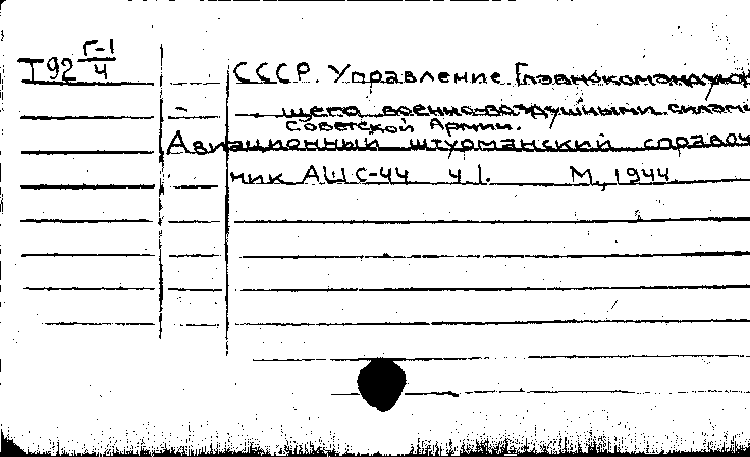 Т92 Г-1/4
СССР. Управление Главнокомандую
щего военно-воздушными силами
Советской Армии.
Авиационный штурманский справоч
ник АШС-44 ч 1. М., 1944.